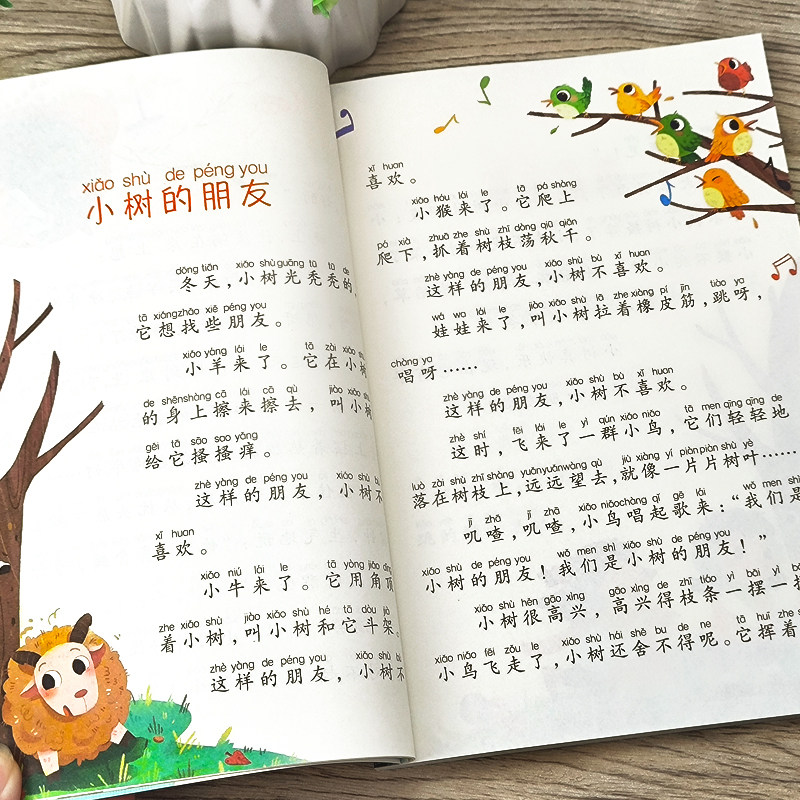 xiǎo shù de péng you
小树的朋友
dōng tiān xiǎo shù guāng tū tū de
冬天，小树光秃秃的，
tā xiǎng zhǎo xiē péng you
它想找些朋友。
xiǎo yáng lái le tā zài xiǎo
小羊来了。它在小树
de shēn shàng cā lái cā qù jiào xiǎo sh
的身上擦来擦去，叫小树
gěi tā sāo sao yǎng
给它搔搔痒。
zhè yàng de péng you xiǎo shù b
这样的朋友，小树不
xǐ huan
喜欢。
xiǎo niú lái le tā yòng jiǎo dǐng
小牛来了。它用角顶
zhe xiǎo shù jiào xiǎo shù hé tā dòu jià
着小树，叫小树和它斗架。
zhè yàng de péng you xiǎo shù b
这样的朋友，小树不
xǐ huan
喜欢。
xiǎo hóu lái le tā pá shàng
小猴来了。它爬上
pá xià zhuā zhe shù zhī dàng qiū qiān
爬下，抓着树枝荡秋千。
zhè yàng de péng you xiǎo shù bù xǐ huan
这样的朋友，小树不喜欢。
wá wa lái le jiào xiǎo shù lā zhe xiàng pí jīn tiào ya
娃娃来了，叫小树拉着橡皮筋，跳呀，
chàng ya
唱呀……
zhè yàng de péng you xiǎo shù bù xǐ huan
这样的朋友，小树不喜欢。
zhè shí fēi lái le yì qún xiǎo niǎo tā men qīng qīng de
这时，飞来了一群小鸟，它们轻轻地
luò zài shù zhī shàng yuǎn yuǎn wàng qù jiù xiàng yí piàn piàn shù yè
落在树枝上，远远望去，就像一片片树叶……
jī zhā jī zhā xiǎo niǎo chàng qǐ gē lái wǒ men shì
叽喳，叽喳，小鸟唱起歌来：“我们是
xiǎo shù de péng you wǒ men shì xiǎo shù de péng you
小树的朋友！我们是小树的朋友！”
xiǎo shù hěn gāo xìng gāo xìng de zhī tiáo yì bǎi yì b
小树很高兴，高兴得枝条一摆一摆
xiǎo niǎo fēi zǒu le xiǎo shù hái shě bu de ne tā huī zhe
小鸟飞走了，小树还舍不得呢。它挥着